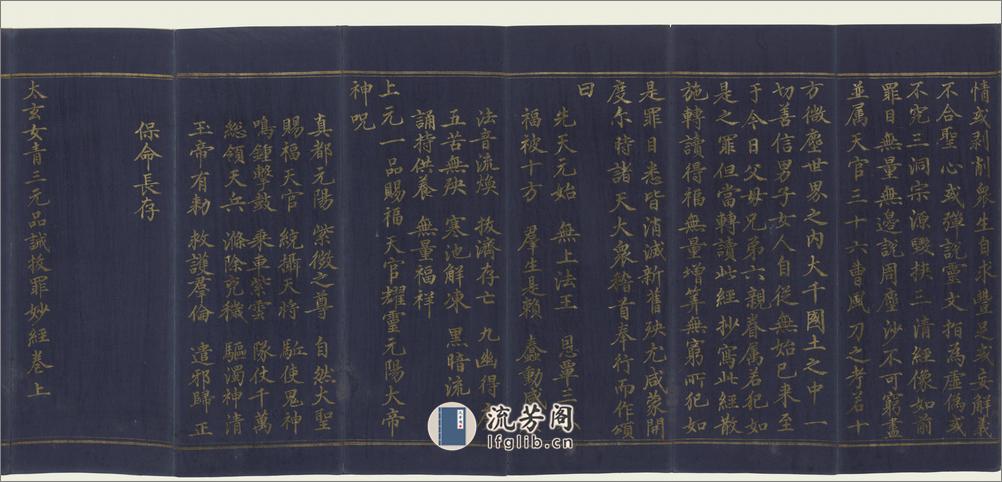 情或剥割衆生自求豐足或妄解義
不合聖心或彈詑靈文指為虛偽或
不究三洞宗源毀拱三清經像如前
罪目無量無邊説周塵沙不可窮盡
並属天官三十六曹風刀之考若十
方微塵世界之内大千國土之中一
切善信男子女人自從無始已来至
于今日父母兄弟六親眷属若犯如
是之罪但當轉讀此經抄寫此經散
施轉讀得福無量增筭無窮所犯如
是罪目悉皆消滅新舊殃尤咸蒙開
度尔時諸天大衆稽首奉行而作頌
曰
先天元始 無上法王 恩覃三
福被十方 羣生是賴 蠢動咸
法音流煥 拔濟存亡 九幽得
五苦無殃 寒池解凍 黒暗流
誦持供養 無量福祥
上元一品賜福天官耀靈元陽大帝
神呪
真都元陽 紫微之尊 自然大聖
賜福天官 統攝天將 驅使鬼神
鳴鍾擊鼓 乗車紫雲 隊仗千萬
總領天兵 滌除兇穢 驅濁神清
玉帝有勅 救護羣倫 遣邪歸正
保命長存
太玄女青三元品誡拔罪妙經卷上
流芳阁
lfglib.cn